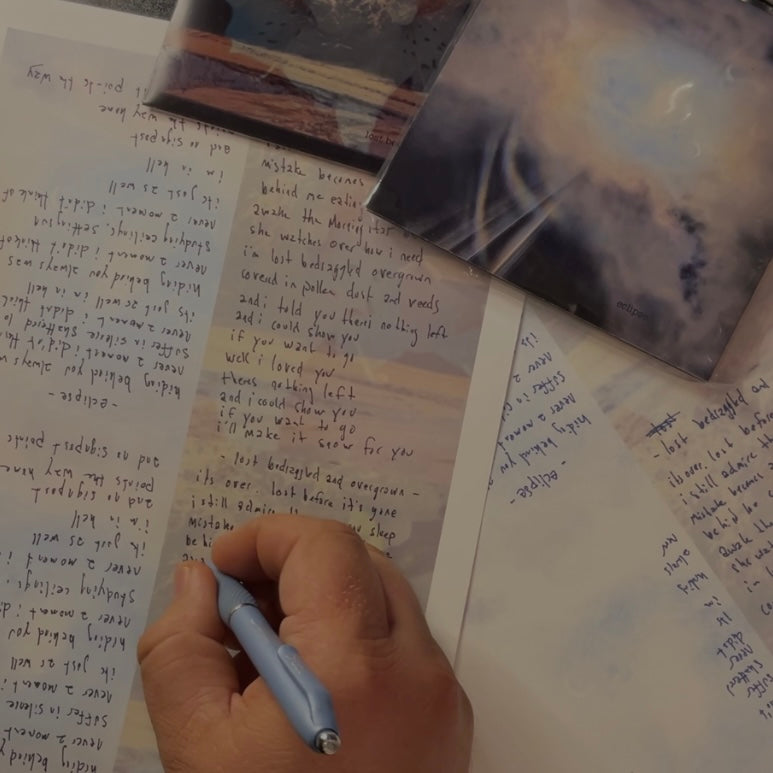 it points the way
points the way home
and no signpost
i'm in hell
it's just as well
never a moment i didn't think of
studying ceilings, setting sun
never a moment i didn't think of
hiding behind you always was
its just as well im in hell
never a moment i didn't think
suffer in silence shattered
never a moment i didn't
hiding behind you always
- eclipse -
and no signpost points
points the way home
and no signpost
i'm in hell
its just as well
never a moment i
studying ceilings,
never a moment i
hiding behind you
its just as well
never a moment i
suffer in silence
never a moment
hiding behind
lost, be
eclipse
mistake becomes
behind me
awake the morning star
she watches over how i need
i'm lost bedraggled overgrown
covered in pollen dust and weeds
and i told you theres nothing left
and i could show you
if you want to go
well i loved you
theres nothing left
and i could show you
if you want to go
i'll make it snow for you
- lost bedraggled and overgrown -
its over. lost before it's gone
i still admire sleep
mistake
its
never a
suffer in
never a moment
hiding behind you
- eclipse -
- lost bedraggled and
its over. lost before
i still admire the
mistake becomes a
behind me
awake the
she wa
i'm l
co
now
always
hiding
im
it
didn't
never
shattered
suffer